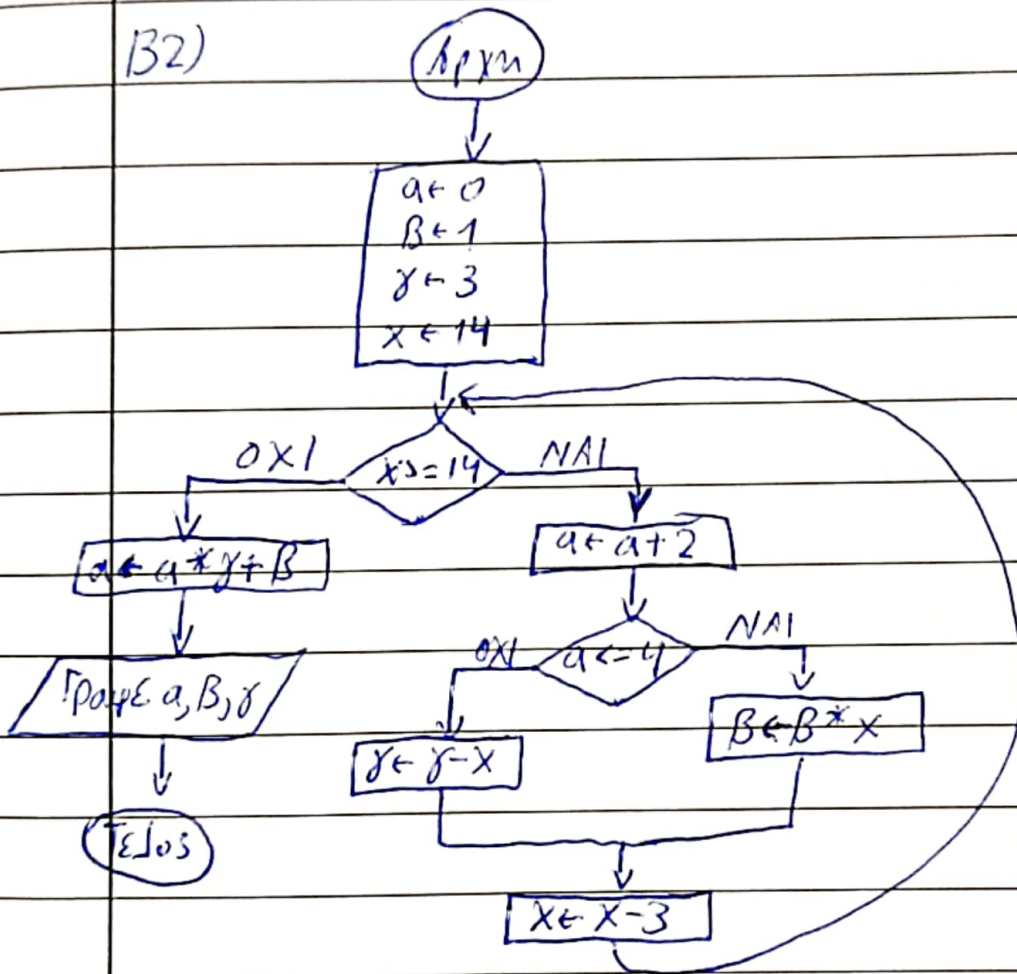 B2)
Αρχη
α ← 0
β ← 1
γ ← 3
x ← 14
x>=14
ΟΧΙ
ΝΑΙ
α ← α * γ + β
α ← α + 2
Γραψε α, β, γ
α <= 4
ΟΧΙ
ΝΑΙ
γ ← γ - x
β ← β * x
Τελος
x ← x - 3